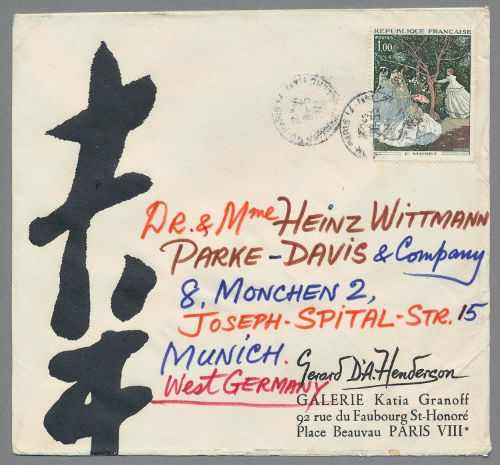 REPUBLIQUE FRANÇAISE
POSTES
1,00
C. MONET
DR. & Mme HEINZ WITTMANN
PARKE-DAVIS & Company
8, MONCHEN 2,
JOSEPH-SPITAL-STR. 15
MUNICH.
West GERMANY
Gerard D'A. Henderson
GALERIE Katia Granoff
92 rue du Faubourg St-Honoré
Place Beauvau PARIS VIIIᵉ